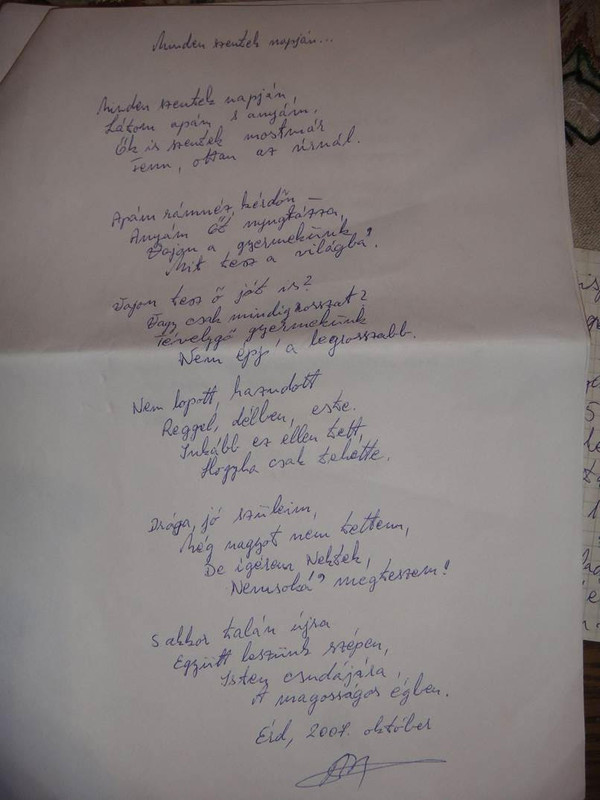 Minden szentek napján...
Minden szentek napján,
Látom apám s anyám.
Ők is szentek mostmár
Fenn, ottan az úrnál.
Apám rámnéz, kérdőn
Anyám őt nyugtázza,
Vajon a gyermekünk
Mit tesz a világba?
Vajon tesz ő jót is?
Vagy csak mindig rosszat?
Tévelygő gyermekünk
Nem épp a legrosszabb.
Nem lopott, hazudott
Reggel, délben, este.
Inkább ez ellen tett,
Hogyha csak tehette.
Drága, jó szüleim,
Még nagyot nem tettem,
De igérem Nektek,
Nemsoká megteszem!
S akkor talán újra
Együtt leszünk szépen,
Isten csudájára,
A magosságos égben.
Érd, 2007. október